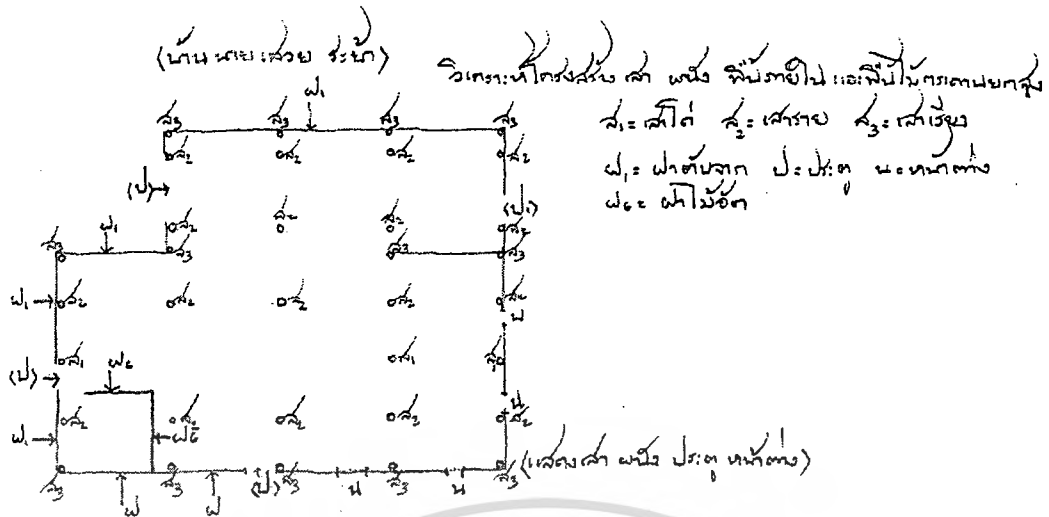 (บ้าน นาย เสวย ระบำ)
วิเคราะห์โครงสร้าง เสา ผนัง พื้นที่ภายใน และพื้นไม้กระดานยกสูง
ส₁= เสาโด่ ส₂= เสาราย ส₃= เสาเรียง
ฝ₁= ฝาตับจาก ป= ประตู น= หน้าต่าง
ฝ₆= ฝาไม้อัด
ฝ₁
ส₃ ส₃ ส₃ ส₃
ส₂ ส₂ ส₂ ส₂
(ป) (ป₁)
ส₂ ส₂ ส₂ ส₂
ส₃ ฝ₁ ส₃ ส₃ ส₃
ฝ₁ ส₂ ส₂ ส₂ ส₂ ส₂
น
ส₁ ส₁
(ป) ฝ₆
น
ฝ₁ ส₂ ฝ₆ ส₂ ส₂ ส₂
(แสดงเสา ผนัง ประตู หน้าต่าง)
ส₃ ฝ ฝ (ป) ส₃ น ส₃ น ส₃